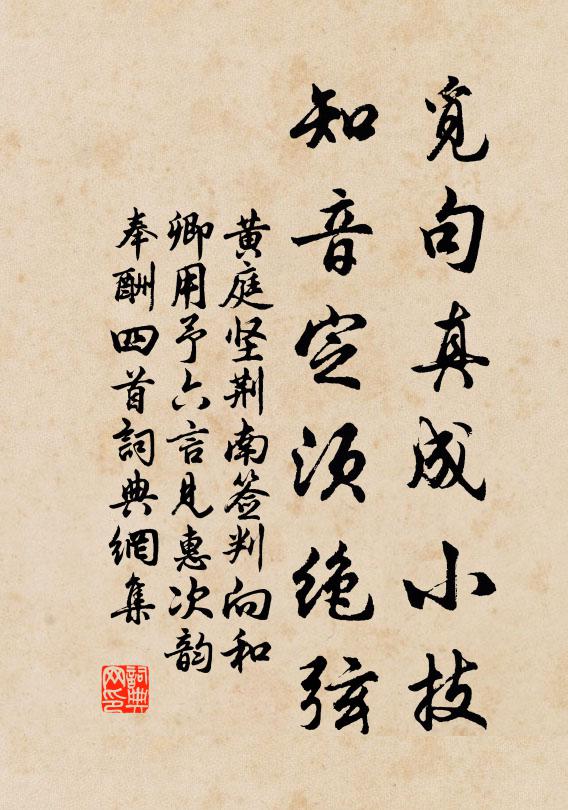 觅句真成小技
知音定须绝弦
黄庭坚荆南签判向和
卿用予六言见惠次韵
奉酬四首詞典網集
詞典网印